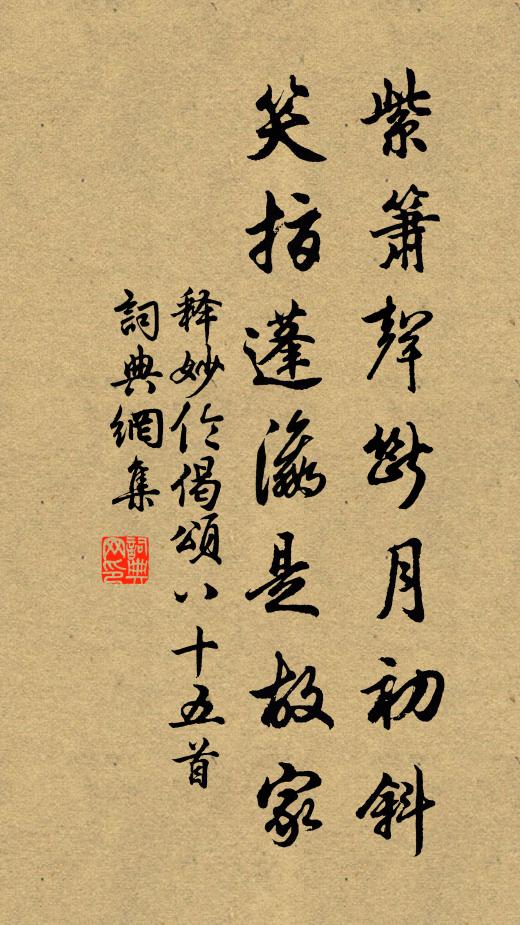 紫簫聲斷月初斜
笑指蓬瀛是故家
释妙伦偈頌八十五首
詞典網集
詞典
网印